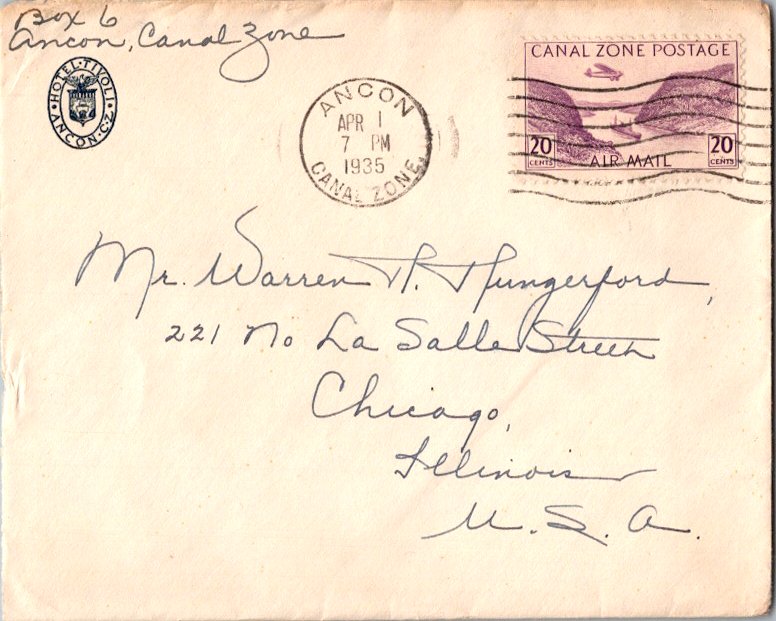 Box 6
Ancon, Canal Zone
HOTEL·TIVOLI
ANCON·C·Z
ANCON
APR 1
7 PM
1935
CANAL ZONE
CANAL ZONE POSTAGE
20 CENTS
AIR MAIL
20 CENTS
Mr. Warren H. Hungerford,
221 No La Salle Street
Chicago,
Illinois
U. S. A.